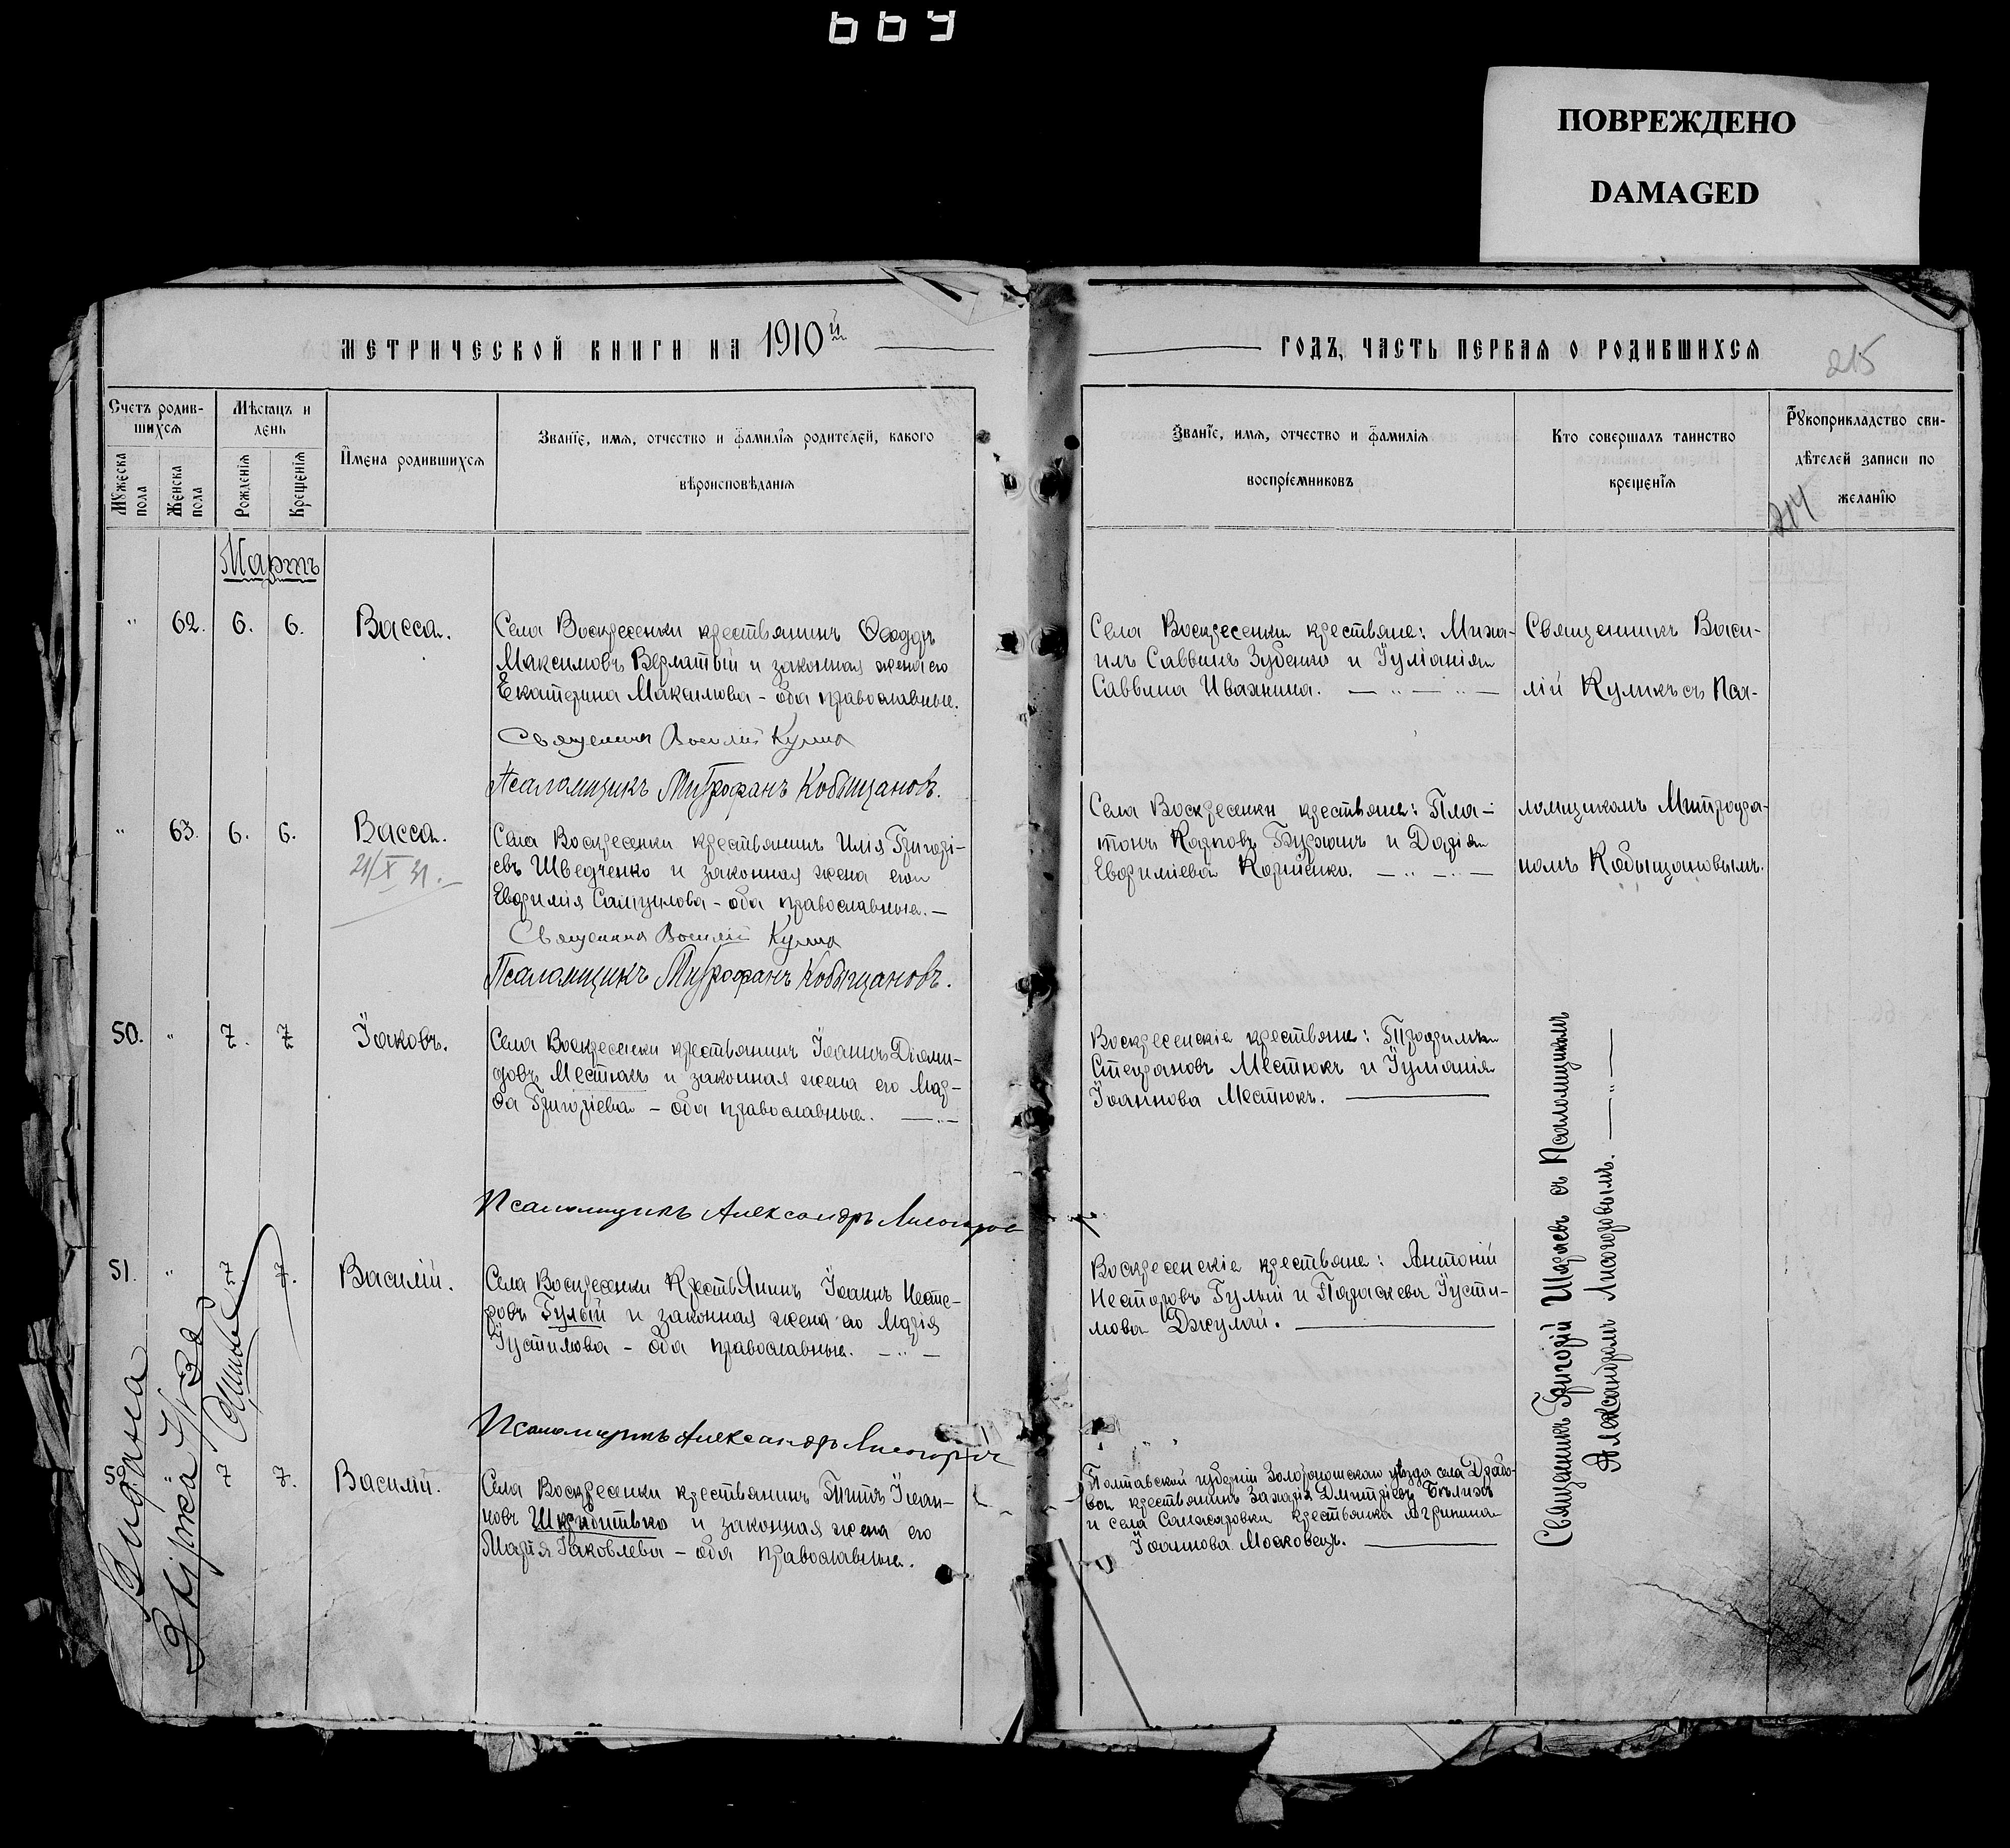 669
ПОВРЕЖДЕНО
DAMAGED
МЕТРИЧЕСКОЙ КНИГИ НА 1910й
ГОДЪ, ЧАСТЬ ПЕРВАЯ О РОДИВШИХСЯ
215
Счетъ родив-
шихся
Мужеска пола
Женска пола
Мѣсяцъ и
день
Рожденія
Крещенія
Имена родившихся
Званїе, имя, отчество и фамилїя родителей, какого
вѣроисповѣданїя
Званїе, имя, отчество и фамилїя
воспрїемниковъ
Кто совершалъ таинство
крещенїя
Рукоприкладство сви-
дѣтелей записи по
желанїю
214
Мартъ
" 62. 6. 6. Васса.
Села Воскресенки крестьянинъ Ѳеодоръ
Максимовъ Верлатый и законная жена его
Екатерина Максимова - оба православные.
Священникъ Василій Куликъ
Псаломщикъ Митрофанъ Кобыщановъ.
Села Воскресенки крестьяне: Миха-
илъ Саввинъ Зубенко и Іуліанія
Саввина Ивахнина.
Священникъ Васи-
лій Куликъ съ Пса-
ломщикомъ Митрофа-
номъ Кобыщановымъ.
" 63. 6. 6. Васса.
21/X 31.
Села Воскресенки крестьянинъ Илія Григорі-
евъ Шведченко и законная жена его
Евфимія Самуилова - оба православные.
Священникъ Василій Куликъ
Псаломщикъ Митрофанъ Кобыщановъ.
Села Воскресенки крестьяне: Пла-
тонъ Карповъ и Дарія
Евфиміева Корніенко.
50. " 7. 7. Іаковъ.
Села Воскресенки крестьянинъ Іоаннъ Діоми-
довъ Местюкъ и законная жена его Мар-
ѳа Григоріева - оба православные.
Псаломщикъ Александръ Лисогоров
Воскресенскіе крестьяне: Трофимъ
Стефановъ Местюкъ и Іуліанія
Іоаннова Местюкъ.
Священникъ Григорій съ Псаломщикомъ
Александромъ Лисогоровымъ.
51. " 7. 7. Василій.
Села Воскресенки Крестьянинъ Іоаннъ Несте-
ровъ Гулый и законная жена его Марія
Іустимова - оба православные.
Псаломщикъ Александръ Лисогоров
Воскресенскіе крестьяне: Антоній
Несторовъ Гулый и Параскева Іусти-
мова Джулай.
52 " 7 7. Василій.
Села Воскресенки крестьянинъ Титъ Іоан-
новъ и законная жена его
Марія Іаковлева - оба православные.
Полтавской губерніи Золотоношскаго уѣзда села Драбо-
во крестьянинъ Захарія Димитріевъ
и села Санжаровки крестьянка Агрипина
Іоаннова Московецъ.